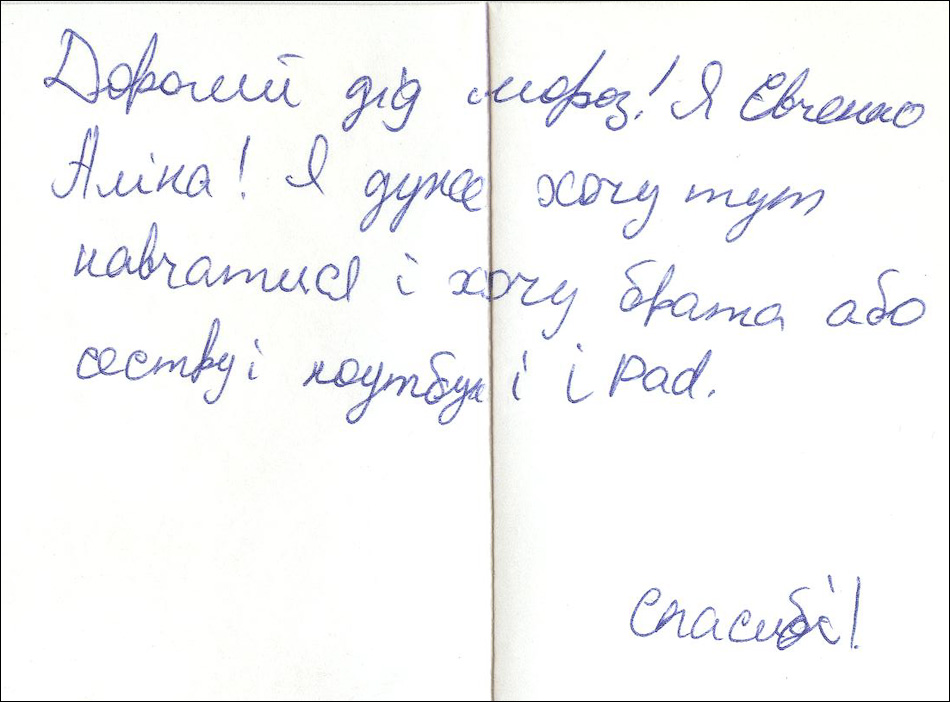 Дорогий дід мороз! Я Євченко
Аліна! Я дуже хочу тут
навчатися і хочу брата або
сестру і ноутбук і i Pad.
спасибі!